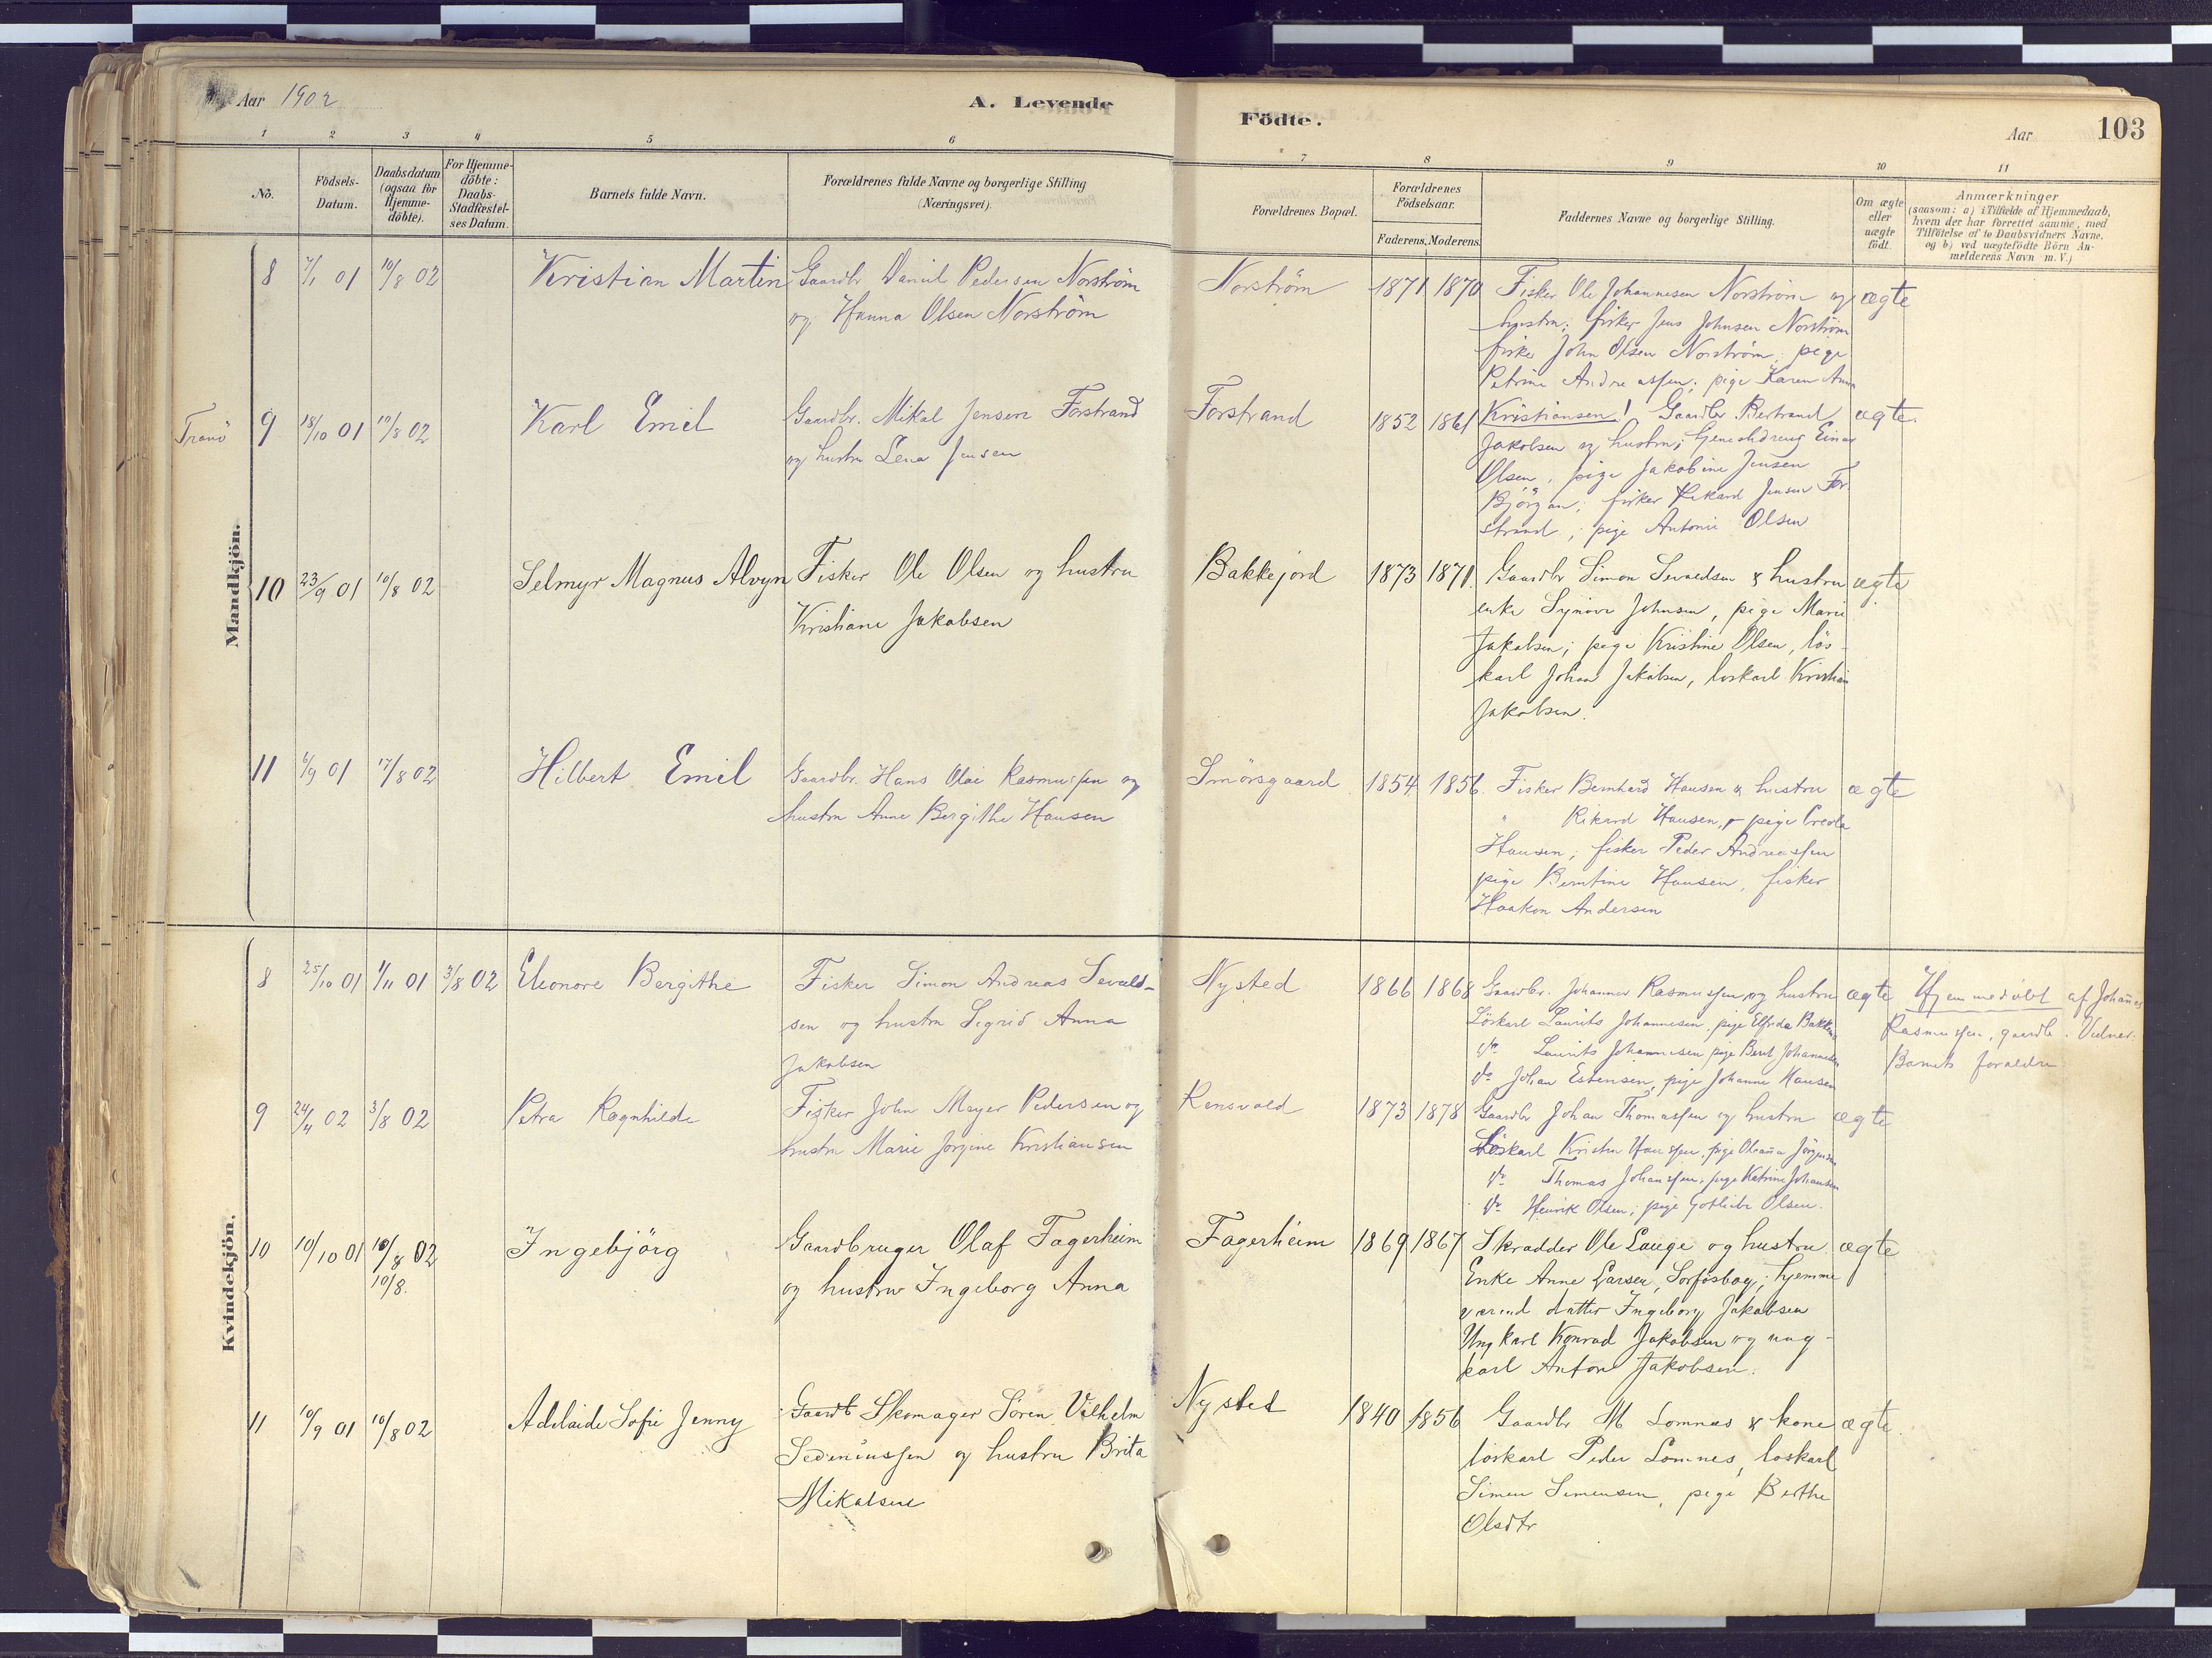 Aar 1902
A. Levende
Födte.
Aar
103
1 2 3 4 5 6 7 8 9 10 11
No.
Födsels-Datum.
Daabsdatum (ogsaa for Hjemme-döbte).
For Hjemme-döbte: Daabs-Stadfæstel-ses Datum.
Barnets fulde Navn.
Forældrenes fulde Navne og borgerlige Stilling (Næringsvei).
Forældrenes Bopæl.
Forældrenes Födselsaar.
Faderens. Moderens.
Faddernes Navne og borgerlige Stilling.
Om ægte eller uægte födt.
Anmærkninger
(saasom: a) i Tilfælde af Hjemmedaab,
hvem der har forrettet samme, med
Tilföielse af to Daabsvidners Navne.
og b) ved uægtefödte Börn An-
melderens Navn m. V.)
Mandkjön.
8 7/1 01 10/8 02 Kristian Martin
Gaardbr Daniel Pedersen Norström
og Hanna Olsen Norström
Norström 1871 1870
Fisker Ole Johannesen Norström og
hustru; fisker Jens Johnsen Norström
fisker John Olsen Norström, pige
Petrine Andreassen; pige Karen Anna
Kristiansen!
ægte
Tranö 9 18/10 01 10/8 02 Karl Emil
Gaardbr. Mikal Jensen Forstrand
og hustru Lena Jensen
Forstrand 1852 1861
Gaardbr Bertrand
Jakobsen og hustru; Einar
Olsen, pige Jakobine Jensen
Björgan; fisker Rikard Jensen For
strand, pige Antonie Olsen
ægte.
10 23/9 01 10/8 02 Selmyr Magnus Alvyn
Fisker Ole Olsen og hustru
Kristiane Jakobsen
Bakkejord 1873 1871.
Gaardbr Simon Sevaldsen & hustru
enke Synöve Johnsen, pige Marie
Jakobsen; pige Kristine Olsen, lös-
karl Johan Jakobsen, loskarl Kristian
Jakobsen.
ægte
11 6/9 01 17/8 02 Hilbert Emil
Gaardbr. Hans Olai Rasmussen og
hustru Anne Bergithe Hansen
Smörsgaard 1854. 1856.
Fisker Bernhard Hansen & hustru
" Rikard Hansen, pige
Hansen; fisker Peder Andreassen
pige Berntine Hansen, fisker
Haakon Andersen
ægte
Kvindekjön.
8 25/10 01 1/11 01 3/8 02 Eleonore Bergithe
Fisker Simon Andreas Sevald-
sen og hustru Sigrid Anna
Jakobsen
Nysted 1866 1868
Gaardbr. Johannes Rasmussen og hustru
Löskarl Laurits Johannesen, pige Elfrida
do Laurits Johannesen pige Berit Johannesen
do Johan Estensen, pige Johanne Hansen
ægte
Hjemmedöbt af Johannes
Rasmussen, gaardb. Vidner:
Barnets forældre
9 24/4 02 3/8 02 Petra Ragnhilde
Fisker John Meyer Pedersen og
hustru Marie Jorgine Kristiansen
Rensvold 1873 1878
Gaardbr Johan Thomassen og hustru
Löskarl Kristen Hanssen, pige Oleana Jörgensen
do Thomas Johanssen, pige Katrine Johansen
do Henrik Olsen; pige Gotliebe Olsen.
ægte
10 10/10 01 10/8 02 Ingebjörg
10/8.
Gaardbruger Olaf Fagerheim
og hustru Ingeborg Anna
Fagerheim 1869 1867
Skrædder Ole Lauge og hustru
Enke Anne Larsen, ; hjemme
værend datter Ingeborg Jakobsen
Ungkarl Konrad Jakobsen og ung-
karl Anton Jakobsen.
ægte
11 10/9 01 10/8 02 Adelaide Sofie Jenny
Gaardb Skomager Sören Vilhelm
og hustru Brita
Mikalsen
Nysted 1840 1856
Gaardbr M Lomnes & kone
loskarl Peder Lomnes, loskarl
Simen Simensen, pige Berthe
Olsdtr
ægte.